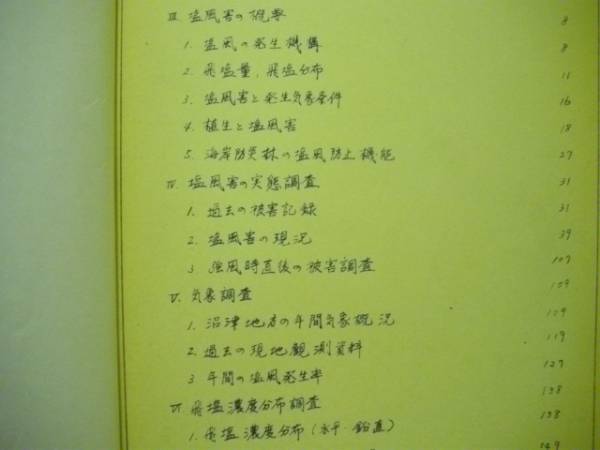 Ⅲ. 塩風害の概要 8
1. 塩風の発生機構 8
2. 飛塩量, 飛塩分布 11
3. 塩風害と発生気象条件 16
4. 植生と塩風害 18
5. 海岸防災林の塩風防止機能 27
Ⅳ. 塩風害の実態調査 31
1. 過去の被害記録 31
2. 塩風害の現況 39
3. 強風時直後の被害調査 107
Ⅴ. 気象調査 109
1. 沼津地方の年間気象概況 109
2. 過去の現地観測資料 119
3 年間の塩風発生率 127
Ⅵ. 飛塩濃度分布調査 138
1. 飛塩濃度分布 (水平・鉛直) 138
149